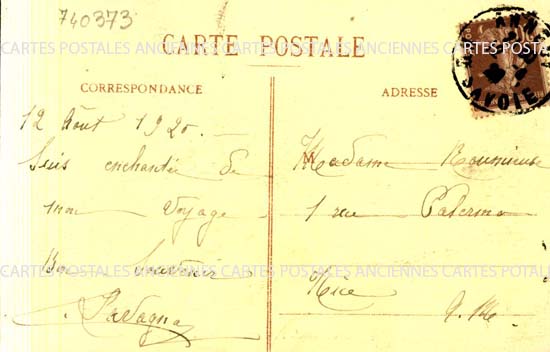 740373
CARTES POSTALES ANCIENNES CARTES POSTALES ANCIENNES CARTES POSTALES
CARTE POSTALE
CORRESPONDANCE
ADRESSE
SAVOIE
12 Août 1920.
Suis enchantée de
mon voyage
Bon souvenir
Madame
1 rue Palermo
Nice
CARTES POSTALES ANCIENNES CARTES POSTALES ANCIENNES CARTES POTALES